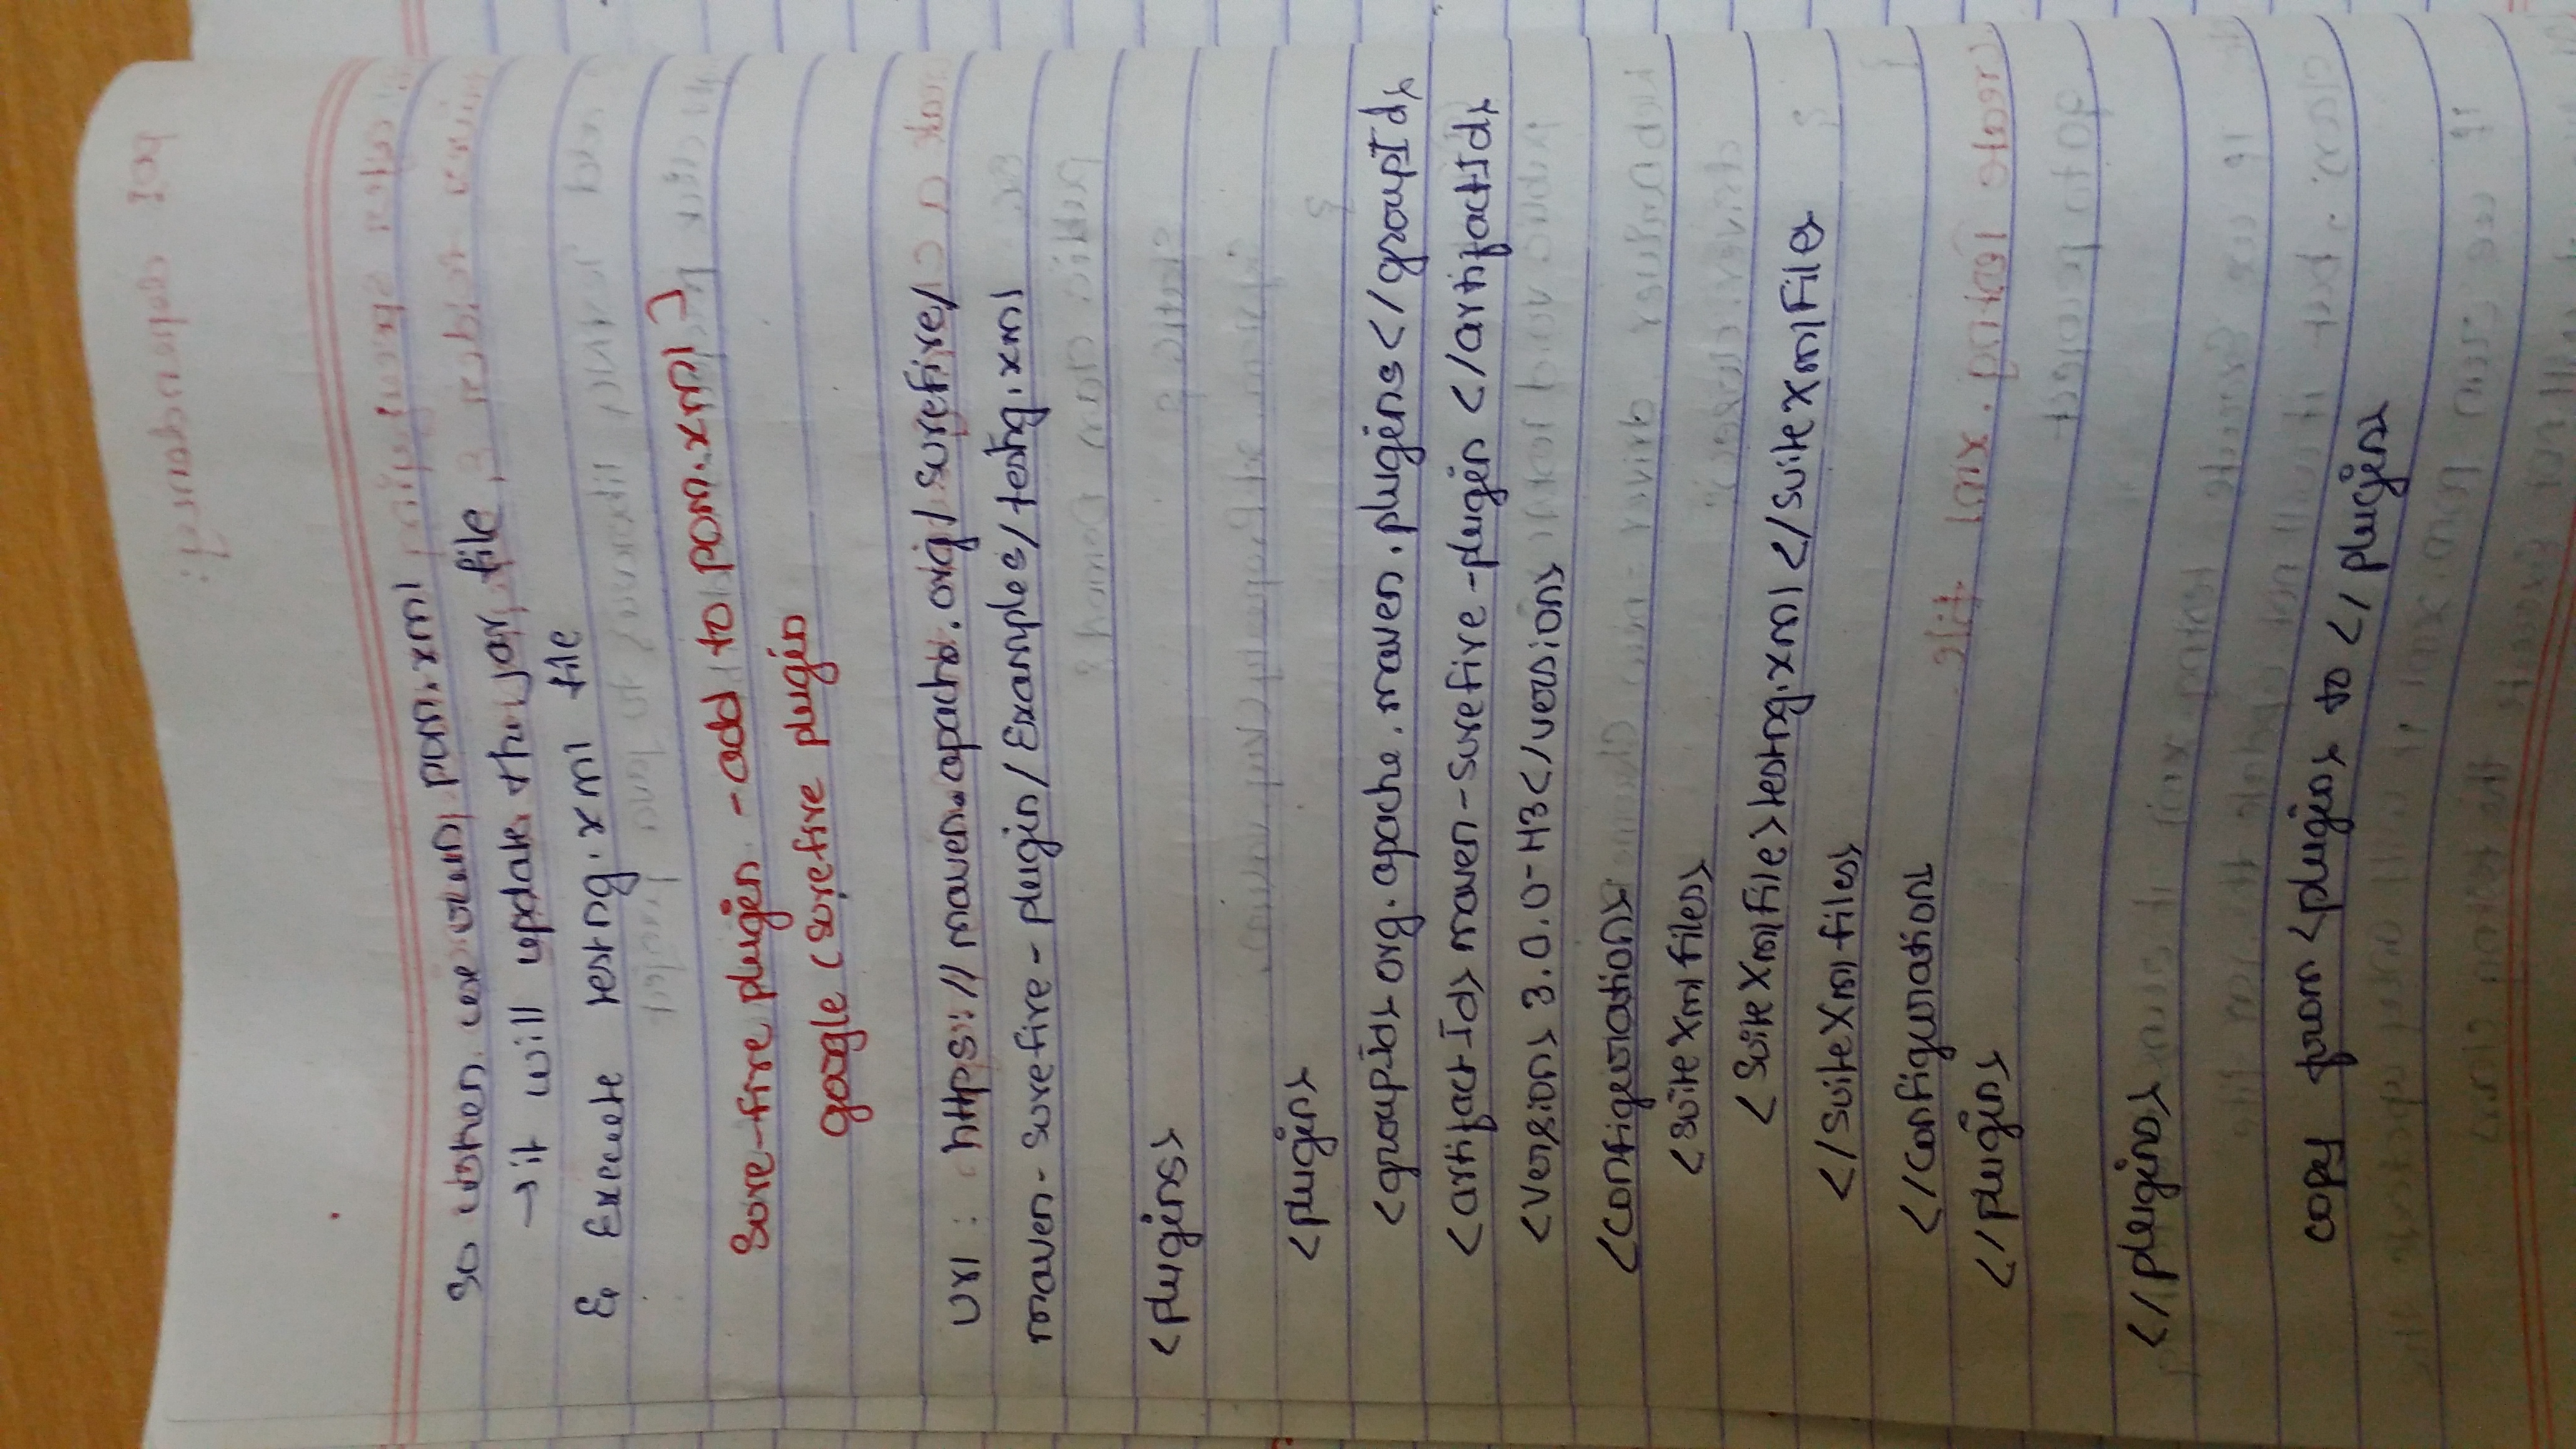 so when we run pom.xml
→ it will update the jar file
& Execute testng.xml file
Sure-fire plugin - add to pom.xml ]
google (surefire plugin
Url : https://maven.apache.org/surefire/
maven-surefire-plugin/Examples/testng.xml
<plugins>
<plugin>
<groupId> org.apache.maven.plugins</groupId>
<artifactId> maven-surefire-plugin </artifactId>
<version> 3.0.0-M3</version>
<configuration>
<suiteXmlfiles>
<suiteXmlFile>testng.xml</suiteXmlFile>
</suiteXmlfiles>
</configuration>
</plugin>
</plugins>
copy from <plugin> to </plugin>